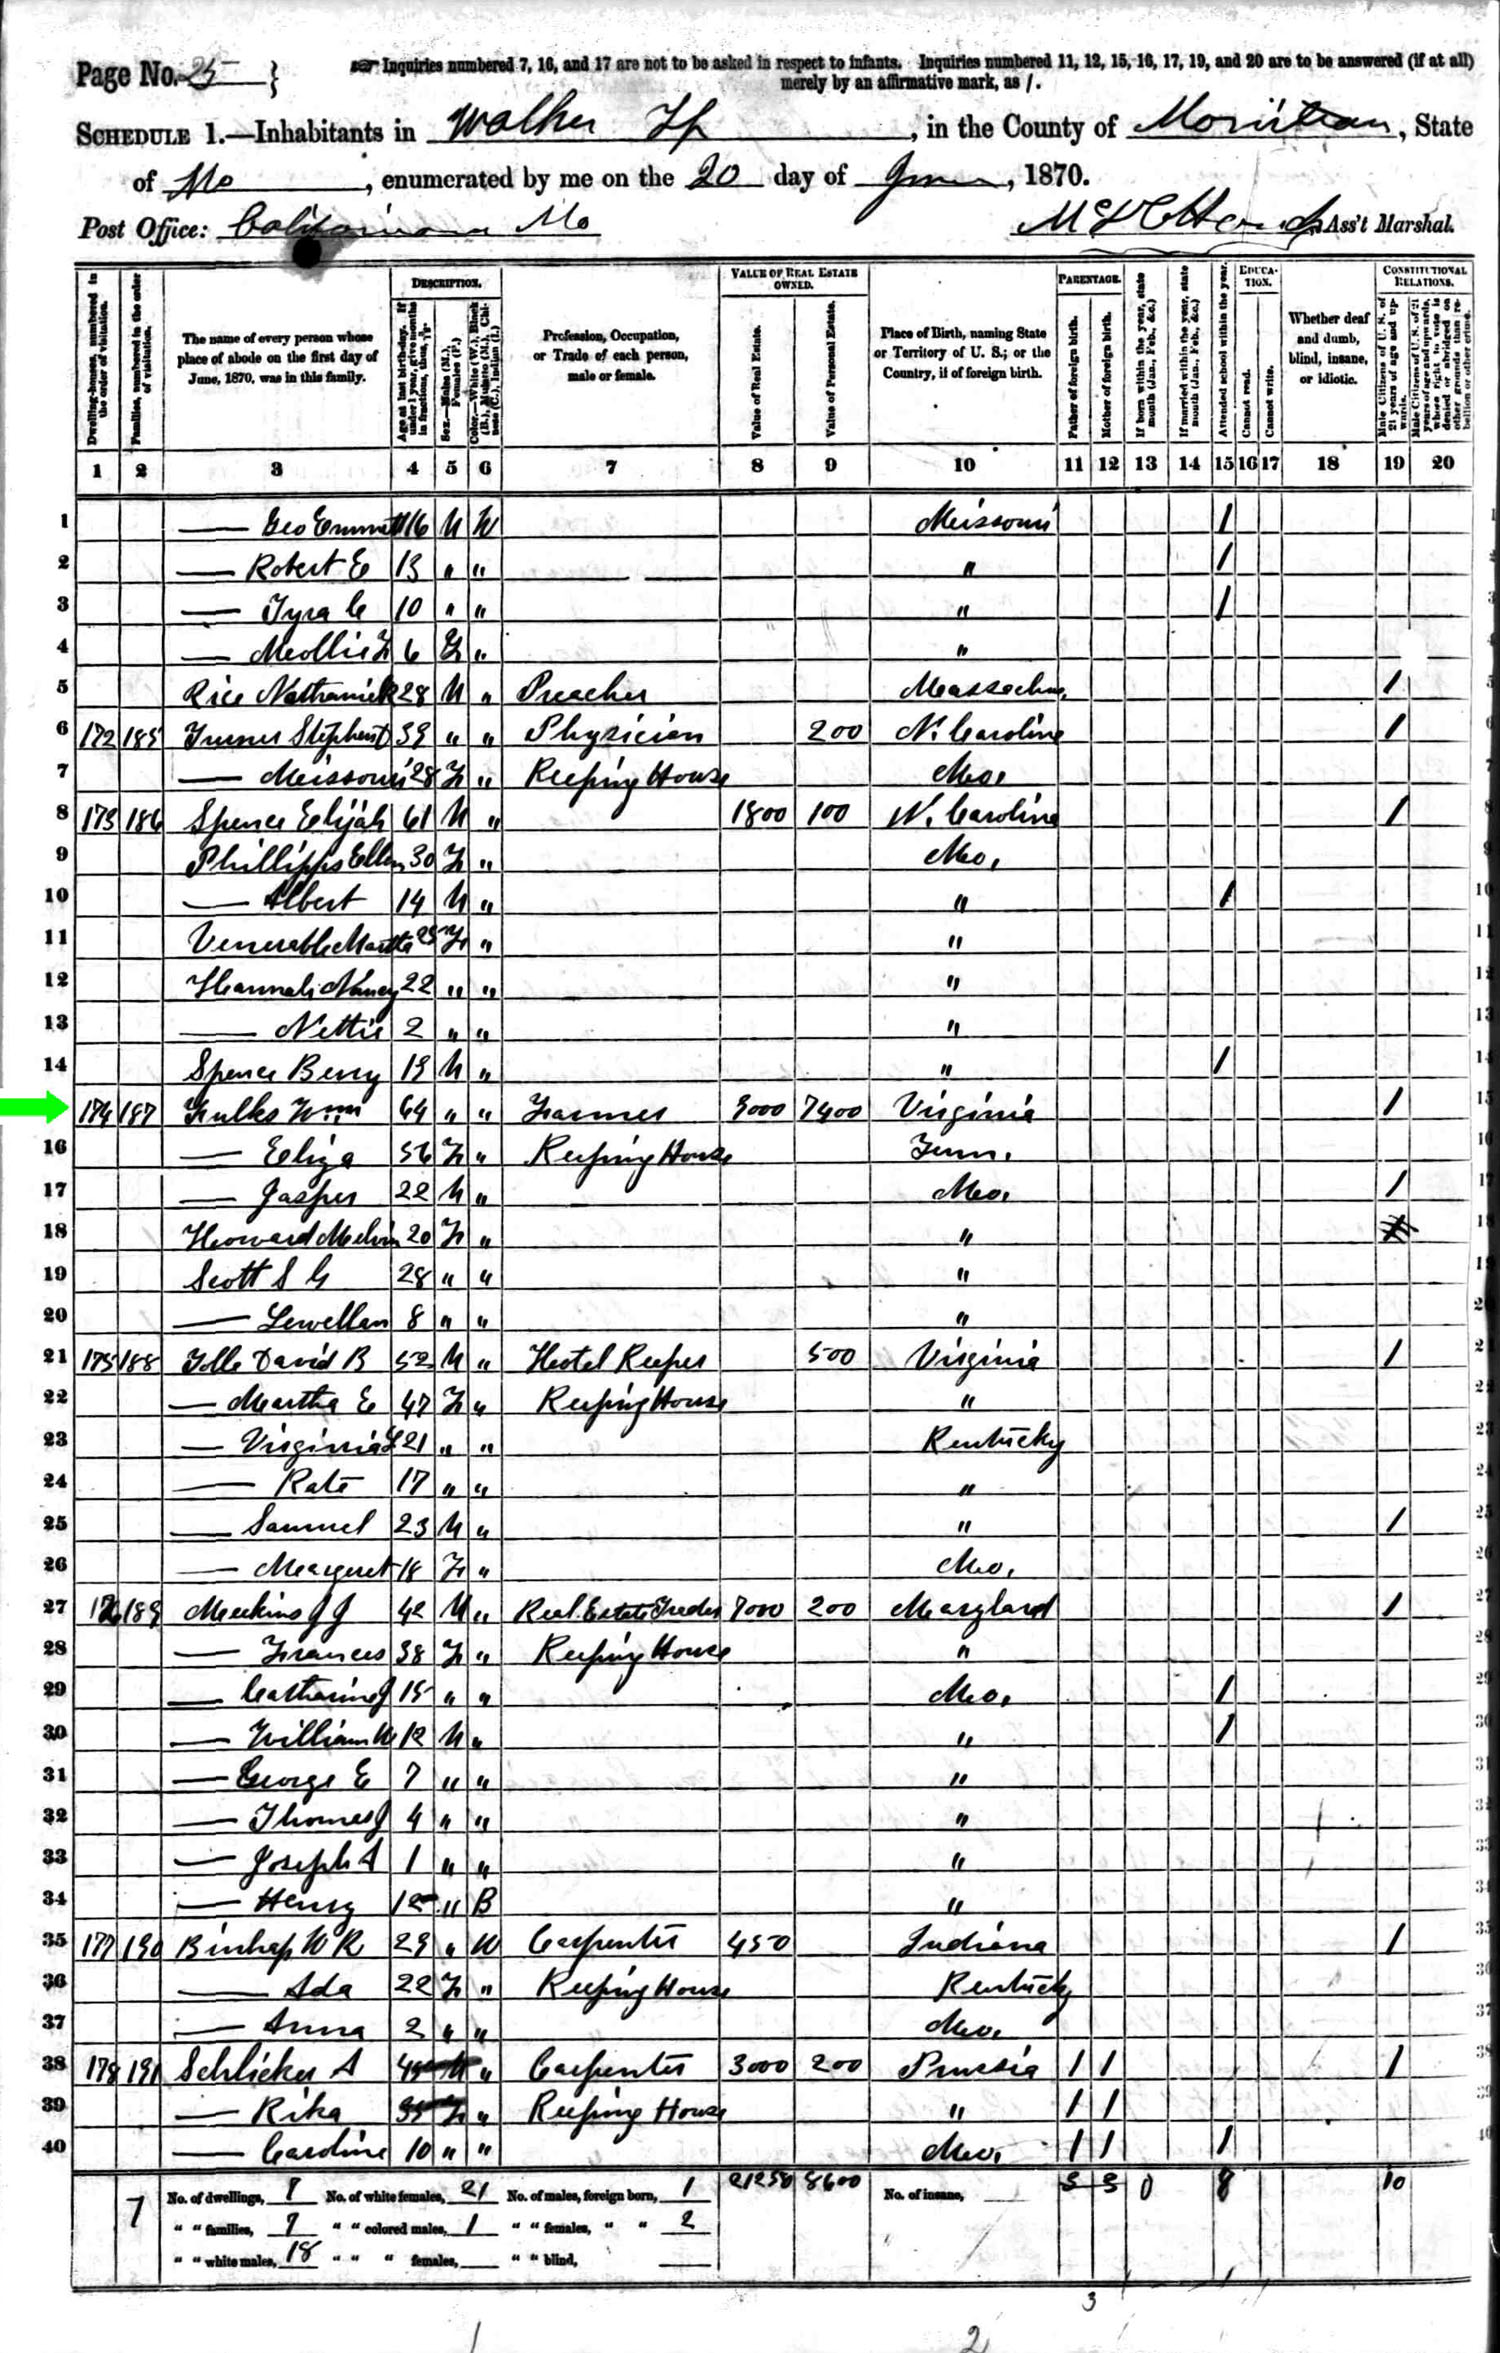 Page No. 25 } Inquiries numbered 7, 16, and 17 are not to be asked in respect to infants. Inquiries numbered 11, 12, 15, 16, 17, 19, and 20 are to be answered (if at all)
merely by an affirmative mark, as /.
SCHEDULE 1.—Inhabitants in Walker Tp, in the County of Moniteau, State
of Mo, enumerated by me on the 20 day of June, 1870.
Post Office: California Mo Ass't Marshal.
Dwelling-houses, numbered in the order of visitation.
Families, numbered in the order of visitation.
The name of every person whose place of abode on the first day of June, 1870, was in this family.
DESCRIPTION.
Age at last birth-day. If under 1 year, give months in fractions, thus,
Sex.—Males (M.), Females (F.)
Color.—White (W.), Black (B.), Mulatto (M.), Chinese (C.), Indian (I.)
Profession, Occupation, or Trade of each person, male or female.
VALUE OF REAL ESTATE OWNED.
Value of Real Estate.
Value of Personal Estate.
Place of Birth, naming State or Territory of U. S.; or the Country, if of foreign birth.
PARENTAGE.
Father of foreign birth.
Mother of foreign birth.
If born within the year, state month (Jan., Feb., &c.)
If married within the year, state month (Jan., Feb., &c.)
Attended school within the year.
EDUCATION.
Cannot read.
Cannot write.
Whether deaf and dumb, blind, insane, or idiotic.
CONSTITUTIONAL RELATIONS.
Male Citizens of U. S. of 21 years of age and upwards.
Male Citizens of U. S. of 21 years of age and upwards, whose right to vote is denied or abridged on other grounds than rebellion or other crime.
1 2 3 4 5 6 7 8 9 10 11 12 13 14 15 16 17 18 19 20
1 — Geo Emmett 16 M W Missouri / 1
2 — Robert E 13 " " " / 2
3 — Tyra C 10 " " " / 3
4 — Mollie F 6 F " " 4
5 Rice Nathaniel 28 M " Preacher Massachu / 5
6 172 185 Turner Stephen D 39 " " Physician 200 N. Carolina / 6
7 — Missouri 28 F " Keeping House Mo. 7
8 173 186 Spence Elijah 61 M " 1800 100 N. Carolina / 8
9 Phillipps Ellen 30 F " Mo. 9
10 — Albert 14 M " " / 10
11 Venerable Martha 25 F " " 11
12 Hannah Nancy 22 " " " 12
13 — Nettie 2 " " " 13
14 Spence Berry 19 M " " / 14
15 174 187 Fulks Wm 64 " " Farmer 9000 7400 Virginia / 15
16 — Eliza 56 F " Keeping House Tenn. 16
17 — Jasper 22 M " Mo. / 17
18 Howard Melvin 20 F " " 18
19 Scott S G 28 " " " 19
20 — Lewellan 8 " " " 20
21 175 188 Tolle David B 52 M " Hotel Keeper 500 Virginia / 21
22 — Martha E 47 F " Keeping House " 22
23 — Virginia L 21 " " Kentucky 23
24 — Kate 17 " " " 24
25 — Samuel 23 M " " / 25
26 — Margaret 18 F " Mo. 26
27 176 189 Meekins J J 42 M " Real Estate Trader 7000 200 Maryland / 27
28 — Frances 38 F " Keeping House " 28
29 — Catharine J 15 " " Mo. / 29
30 — William W 12 M " " / 30
31 — George E 7 " " " 31
32 — Thomas J 4 " " " 32
33 — Joseph A 1 " " " 33
34 — Henry 12 " B " 34
35 177 190 W R 29 " W Carpenter 450 Indiana / 35
36 — Ada 22 F " Keeping House Kentucky 36
37 — Anna 2 " " Mo. 37
38 178 191 Schlicker A 45 M " Carpenter 3000 200 Prussia / / / 38
39 — Rika 35 F " Keeping House " / / 39
40 — Caroline 10 " " Mo. / / / 40
7 No. of dwellings, 7 No. of white females, 21 No. of males, foreign born, 1 21250 8600 No. of insane, 3 3 0 8 10
" " families, 7 " " colored males, 1 " " females, " " 2
" " white males, 18 " " " females, " " blind,
3
1 2